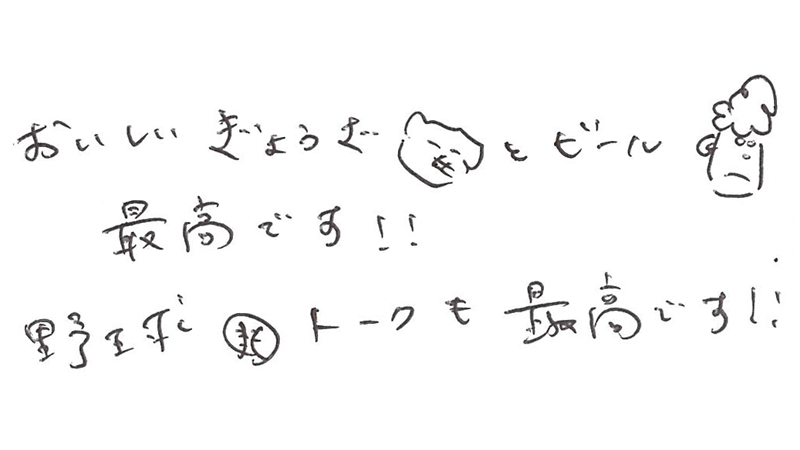 おいしいぎょうざとビール
最高です!!
野球トークも最高です!!